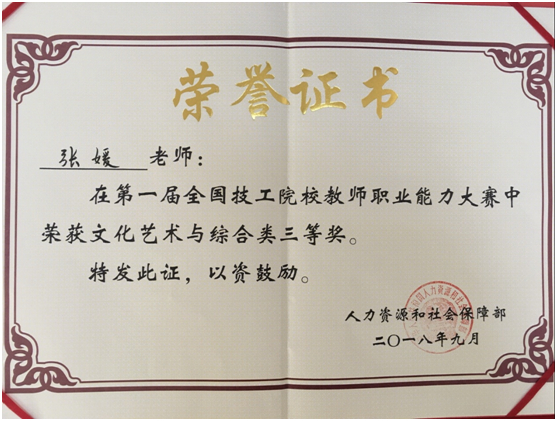 荣誉证书
张媛 老师：
在第一届全国技工院校教师职业能力大赛中
荣获文化艺术与综合类三等奖。
特发此证，以资鼓励。
人力资源和社会保障部
二〇一八年九月